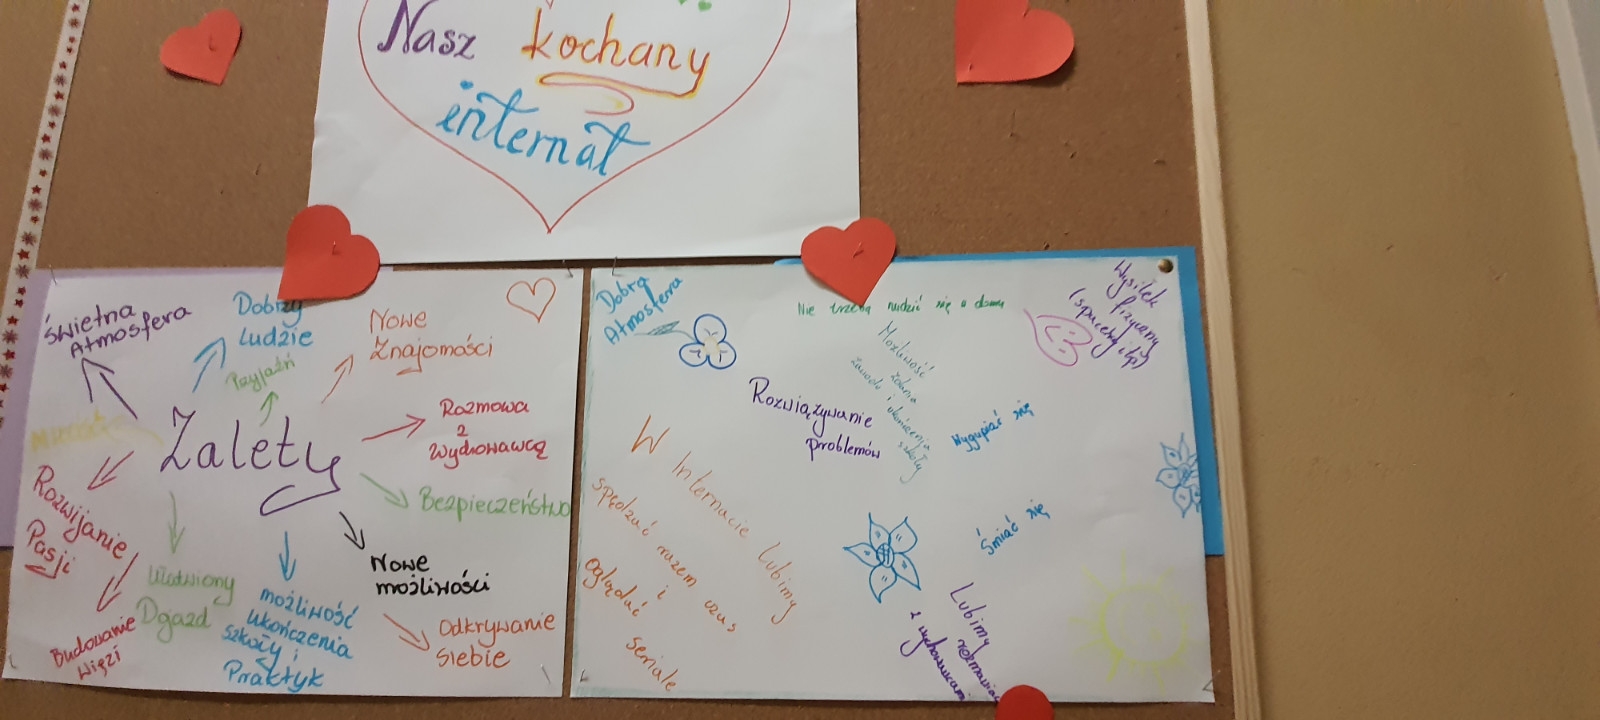 Nasz kochany
internat
świetna
Atmosfera
Dobrzy
Ludzie
Przyjaźń
Nowe
Znajomości
Rozmowa
z
wychowawcą
Zalety
Bezpieczeństwo
Rozwijanie
Pasji
Nowe
możliwości
Ułatwiony
Dojazd
możliwość
ukończenia
szkoły i
Praktyk
Budowanie
więzi
Odkrywanie
siebie
Dobra
Atmosfera
Nie trzeba nudzić się w domu
Wysiłek
fizyczny
(spacery itp)
Możliwość
zdania
zawodu i ukończenia
szkoły
Rozwiązywanie
problemów
Wygupiać się
W Internacie Lubimy
spędzać razem czas
i
oglądać seriale
Śmiać się
Lubimy
rozmawiać
z wychowawcami